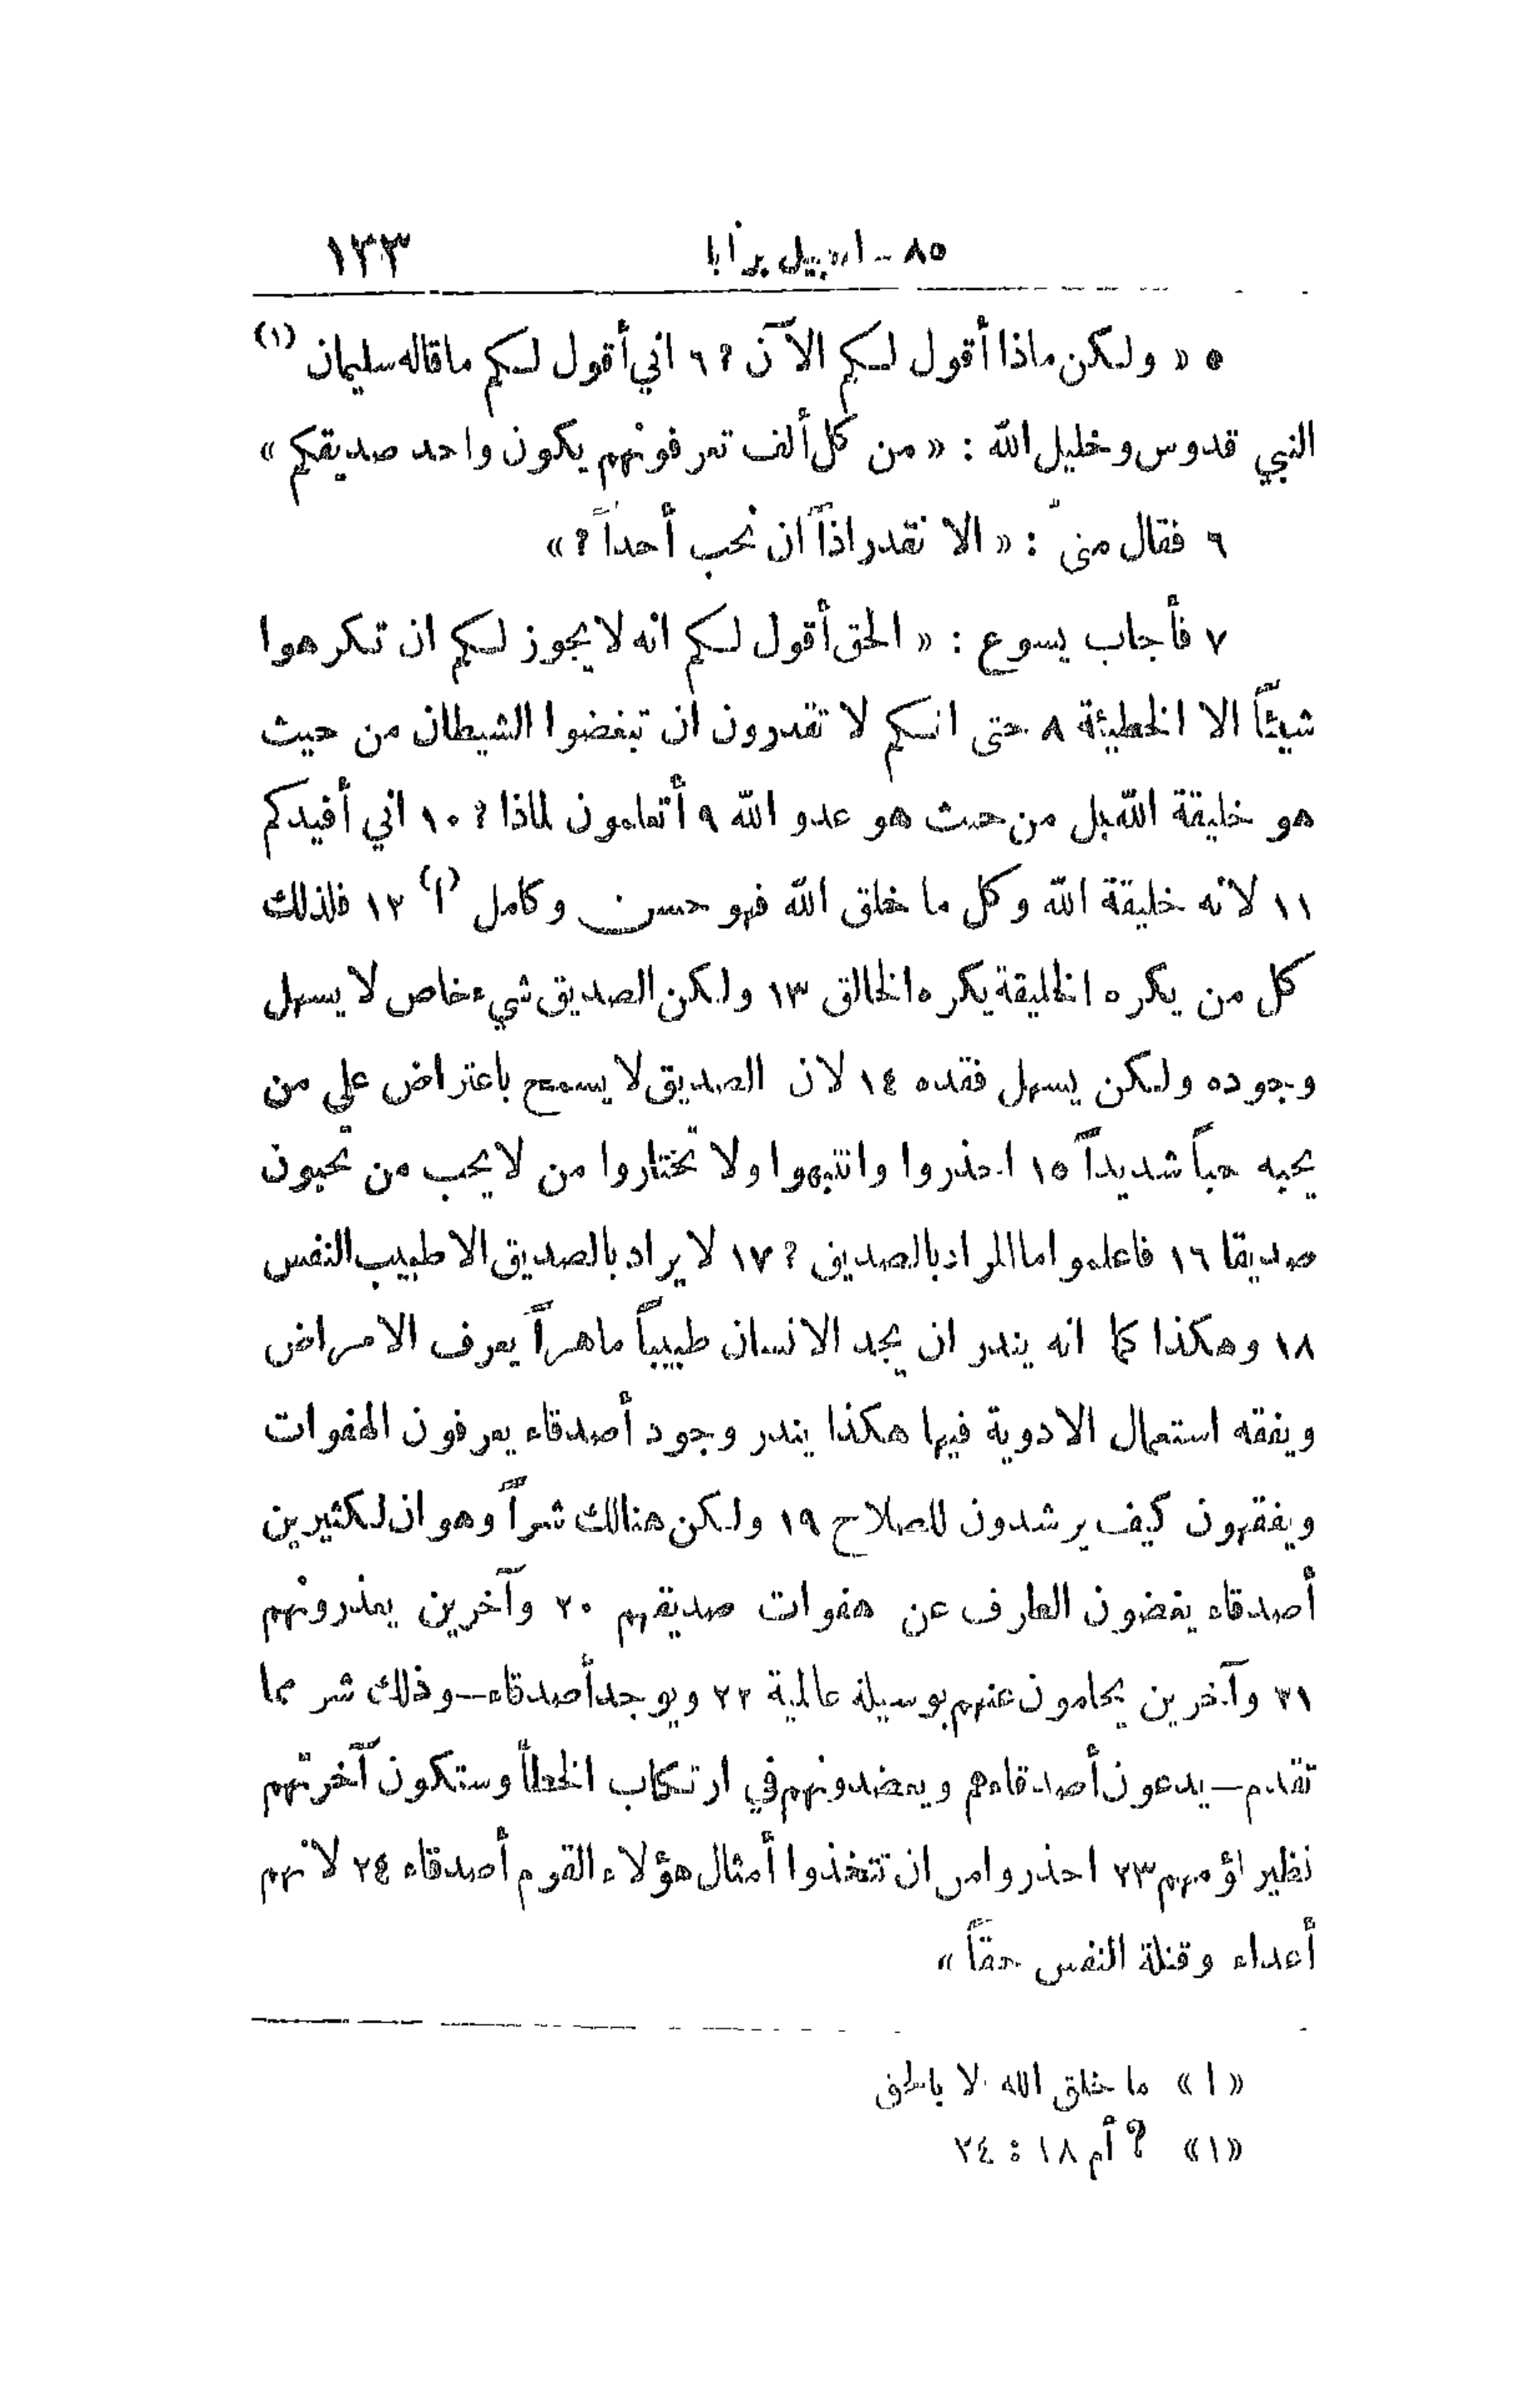 ٨٥ - انجيل برنابا ١٣٣
٥ « ولكن ماذا أقول لكم الآن ? ٦ اني أقول لكم ما قاله سليمان (١)
النبي قدوس وخليل الله : « من كل ألف تعرفونهم يكون واحد صديقكم »
٦ فقال متى : « الا نقدر اذاً ان نحب أحداً ? »
٧ فأجاب يسوع : « الحق أقول لكم انه لا يجوز لكم ان تكرهوا
شيئاً الا الخطيئة ٨ حتى انكم لا تقدرون ان تبغضوا الشيطان من حيث
هو خليقة الله بل من حيث هو عدو الله ٩ أتعلمون لماذا ? ١٠ اني أفيدكم
١١ لانه خليقة الله وكل ما خلق الله فهو حسن وكامل (ا) ١٢ فلذلك
كل من يكره الخليقة يكره الخالق ١٣ ولكن الصديق شيء خاص لا يسهل
وجوده ولكن يسهل فقده ١٤ لان الصديق لا يسمح باعتراض على من
يحبه حباً شديداً ١٥ احذروا وانتبهوا ولا تختاروا من لا يحب من تحبون
صديقا ١٦ فاعلموا ما المراد بالصديق ? ١٧ لا يراد بالصديق الا طبيب النفس
١٨ وهكذا كما انه يندر ان يجد الانسان طبيباً ماهراً يعرف الامراض
ويفقه استعمال الادوية فيها هكذا يندر وجود أصدقاء يعرفون الهفوات
ويفقهون كيف يرشدون للصلاح ١٩ ولكن هنالك شراً وهو ان لكثيرين
أصدقاء يغضون الطرف عن هفوات صديقهم ٢٠ وآخرين يعذرونهم
٢١ وآخرين يحامون عنهم بوسيلة عالمية ٢٢ ويوجد أصدقاء — وذلك شر مما
تقدم — يدعون أصدقاءهم ويعضدونهم في ارتكاب الخطأ وستكون آخرتهم
نظير لؤمهم ٢٣ احذروا من ان تتخذوا أمثال هؤلاء القوم أصدقاء ٢٤ لانهم
أعداء وقتلة النفس حقاً »
« ا » ما خلق الله الا بالحق
«١» ? أم ١٨ : ٢٤